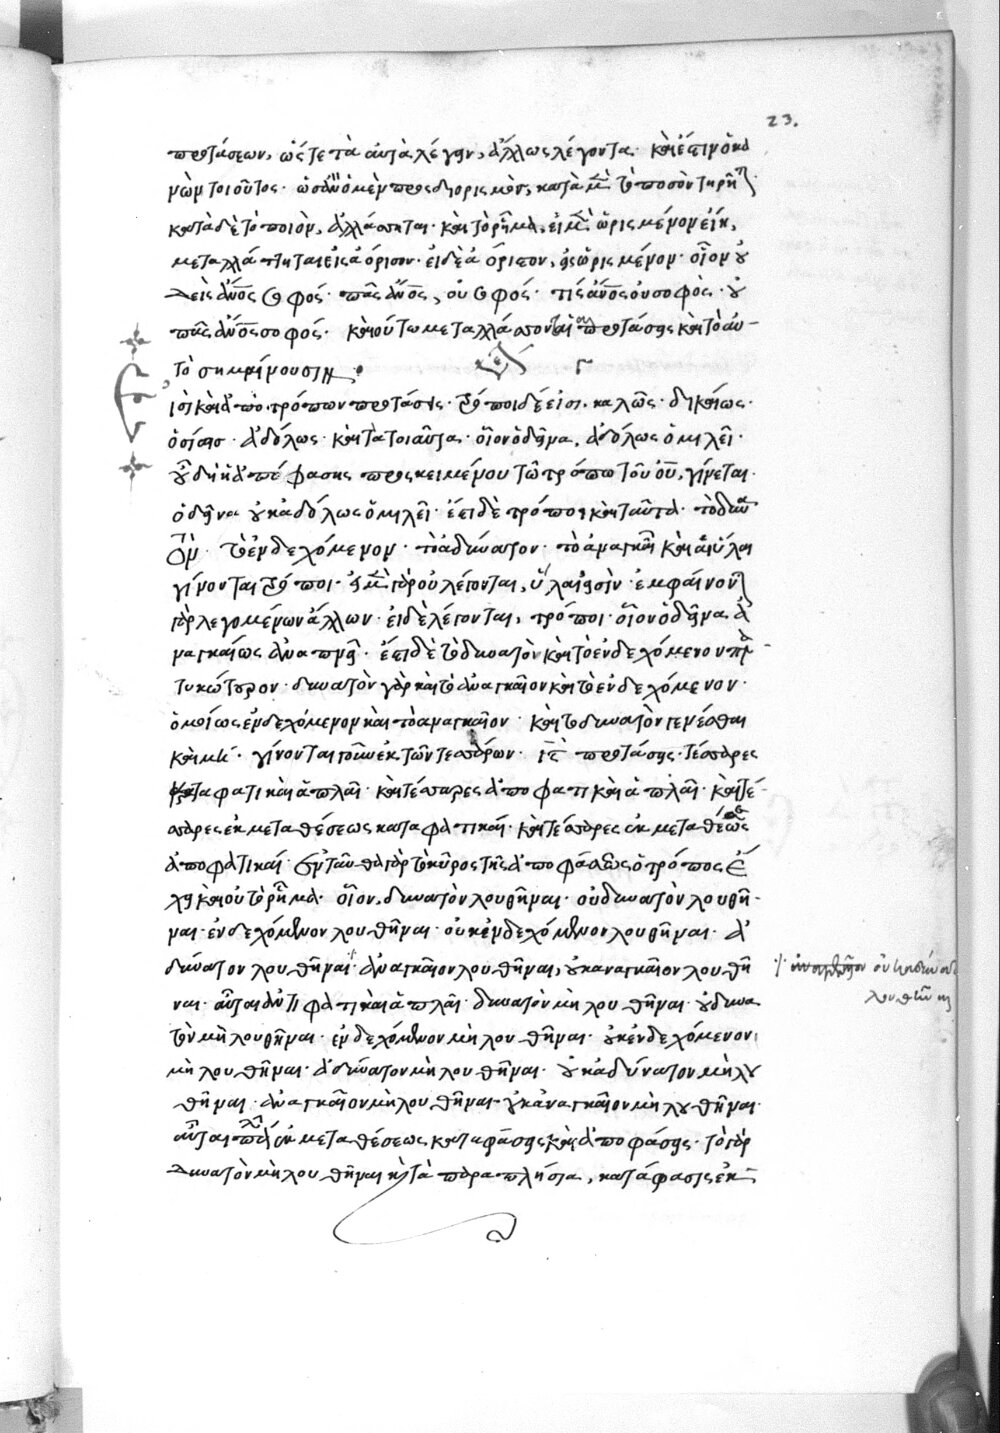 23.
προτάσεων, ὥστε τὰ αὐτὰ λέγειν, ἄλλως λέγοντα. καὶ ἔστιν ὁ κα
νὼν τοιοῦτος· ὡς ἂν ὁ μὲν προσδιορισμὸς, κατὰ μὲν τὸ ποσὸν τηρῆται
κατὰ δὲ τὸ ποιὸν, ἀλλάσσηται· καὶ τὸ ῥῆμα, εἰ μὲν ὡρισμένον εἴη,
μεταλλάττηται εἰς ἀόριστον· εἰ δὲ ἀόριστον, εἰς ὡρισμένον· οἷον οὐ
δεὶς ἄνος σοφός· πᾶς ἄνος, οὐ σοφός· τὶς ἄνος οὐ σοφὸς· οὐ
πᾶς ἄνος σοφός· καὶ οὕτω μεταλλάσσονται αἱ προτάσεις καὶ τὸ αὐ-
τὸ σημαίνουσιν
Εἰσὶ καὶ ἀπὸ τρόπων προτάσεις· τρόποι δέ εἰσι, καλῶς· δικαίως·
ὁσίως· ἀδόλως· καὶ τὰ τοιαῦτα· οἷον ὁ δεῖνα, ἀδόλως ὁμιλεῖ·
οὗ δὴ ἡ ἀπόφασις προσκειμένου τῷ τρόπῳ τοῦ οὐ, γίνεται·
ὁ δεῖνα οὐκ ἀδόλως ὁμιλεῖ· εἰσὶ δὲ τρόποι καὶ ταῦτα· τὸ δυνα
τόν· τὸ ἐνδεχόμενον· τὸ ἀδύνατον· τὸ ἀναγκαῖον καὶ αἱ ὗλαι
γίνονται τρόποι· εἰ μὲν γὰρ οὐ λέγονται, ὗλαι εἰσὶν· ἐμφαίνονται
γὰρ λεγομένων ἄλλων· εἰ δὲ λέγονται, τρόποι· οἷον ὁ δεῖνα ἀ
ναγκαίως ἀναπνεῖ· ἔστι δὲ τὸ δυνατὸν καὶ τὸ ἐνδεχόμενον
δυνατὸν γὰρ καὶ τὸ ἀναγκαῖον καὶ τὸ ἐνδεχόμενον·
ὁμοίως ἐνδεχόμενον καὶ τὸ ἀναγκαῖον· καὶ τὸ δυνατὸν γενέσθαι
καὶ μή· γίνονται γοῦν ἐκ τῶν τεσσάρων· ις προτάσεις· τέσσαρες
καταφατικαὶ ἁπλαῖ· καὶ τέσσαρες ἀποφατικαὶ ἁπλαῖ· καὶ τέσ
σαρες ἐκ μεταθέσεως καταφατικαί· καὶ τέσσαρες ἐκ μεταθέσεως
ἀποφατικαί· ἐνταῦθα γὰρ τὸ κῦρος τῆς ἀποφάσεως ὁ τρόπος ἔ
χει καὶ οὐ τὸ ῥῆμα· οἷον, δυνατὸν λουθῆναι· οὐ δυνατὸν λουθῆ-
ναι· ἐνδεχόμενον λουθῆναι· οὐκ ἐνδεχόμενον λουθῆναι· ἀ
δύνατον λουθῆναι· ἀναγκαῖον λουθῆναι, οὐκ ἀναγκαῖον λουθῆ
ναι· αὗται ἀντιφατικαὶ ἁπλαῖ· δυνατὸν μὴ λουθῆναι· οὐ δυνα
τὸν μὴ λουθῆναι· ἐνδεχόμενον μὴ λουθῆναι· οὐκ ἐνδεχόμενον
μὴ λουθῆναι· ἀδύνατον μὴ λουθῆναι· οὐκ ἀδύνατον μὴ λου
θῆναι· ἀναγκαῖον μὴ λουθῆναι· οὐκ ἀναγκαῖον μὴ λουθῆναι·
αὗται πάλιν ἐκ μεταθέσεως καταφάσεις καὶ ἀποφάσεις· τὸ γὰρ
δυνατὸν μὴ λουθῆναι καὶ τὰ παραπλήσια, κατάφασις ἐκ